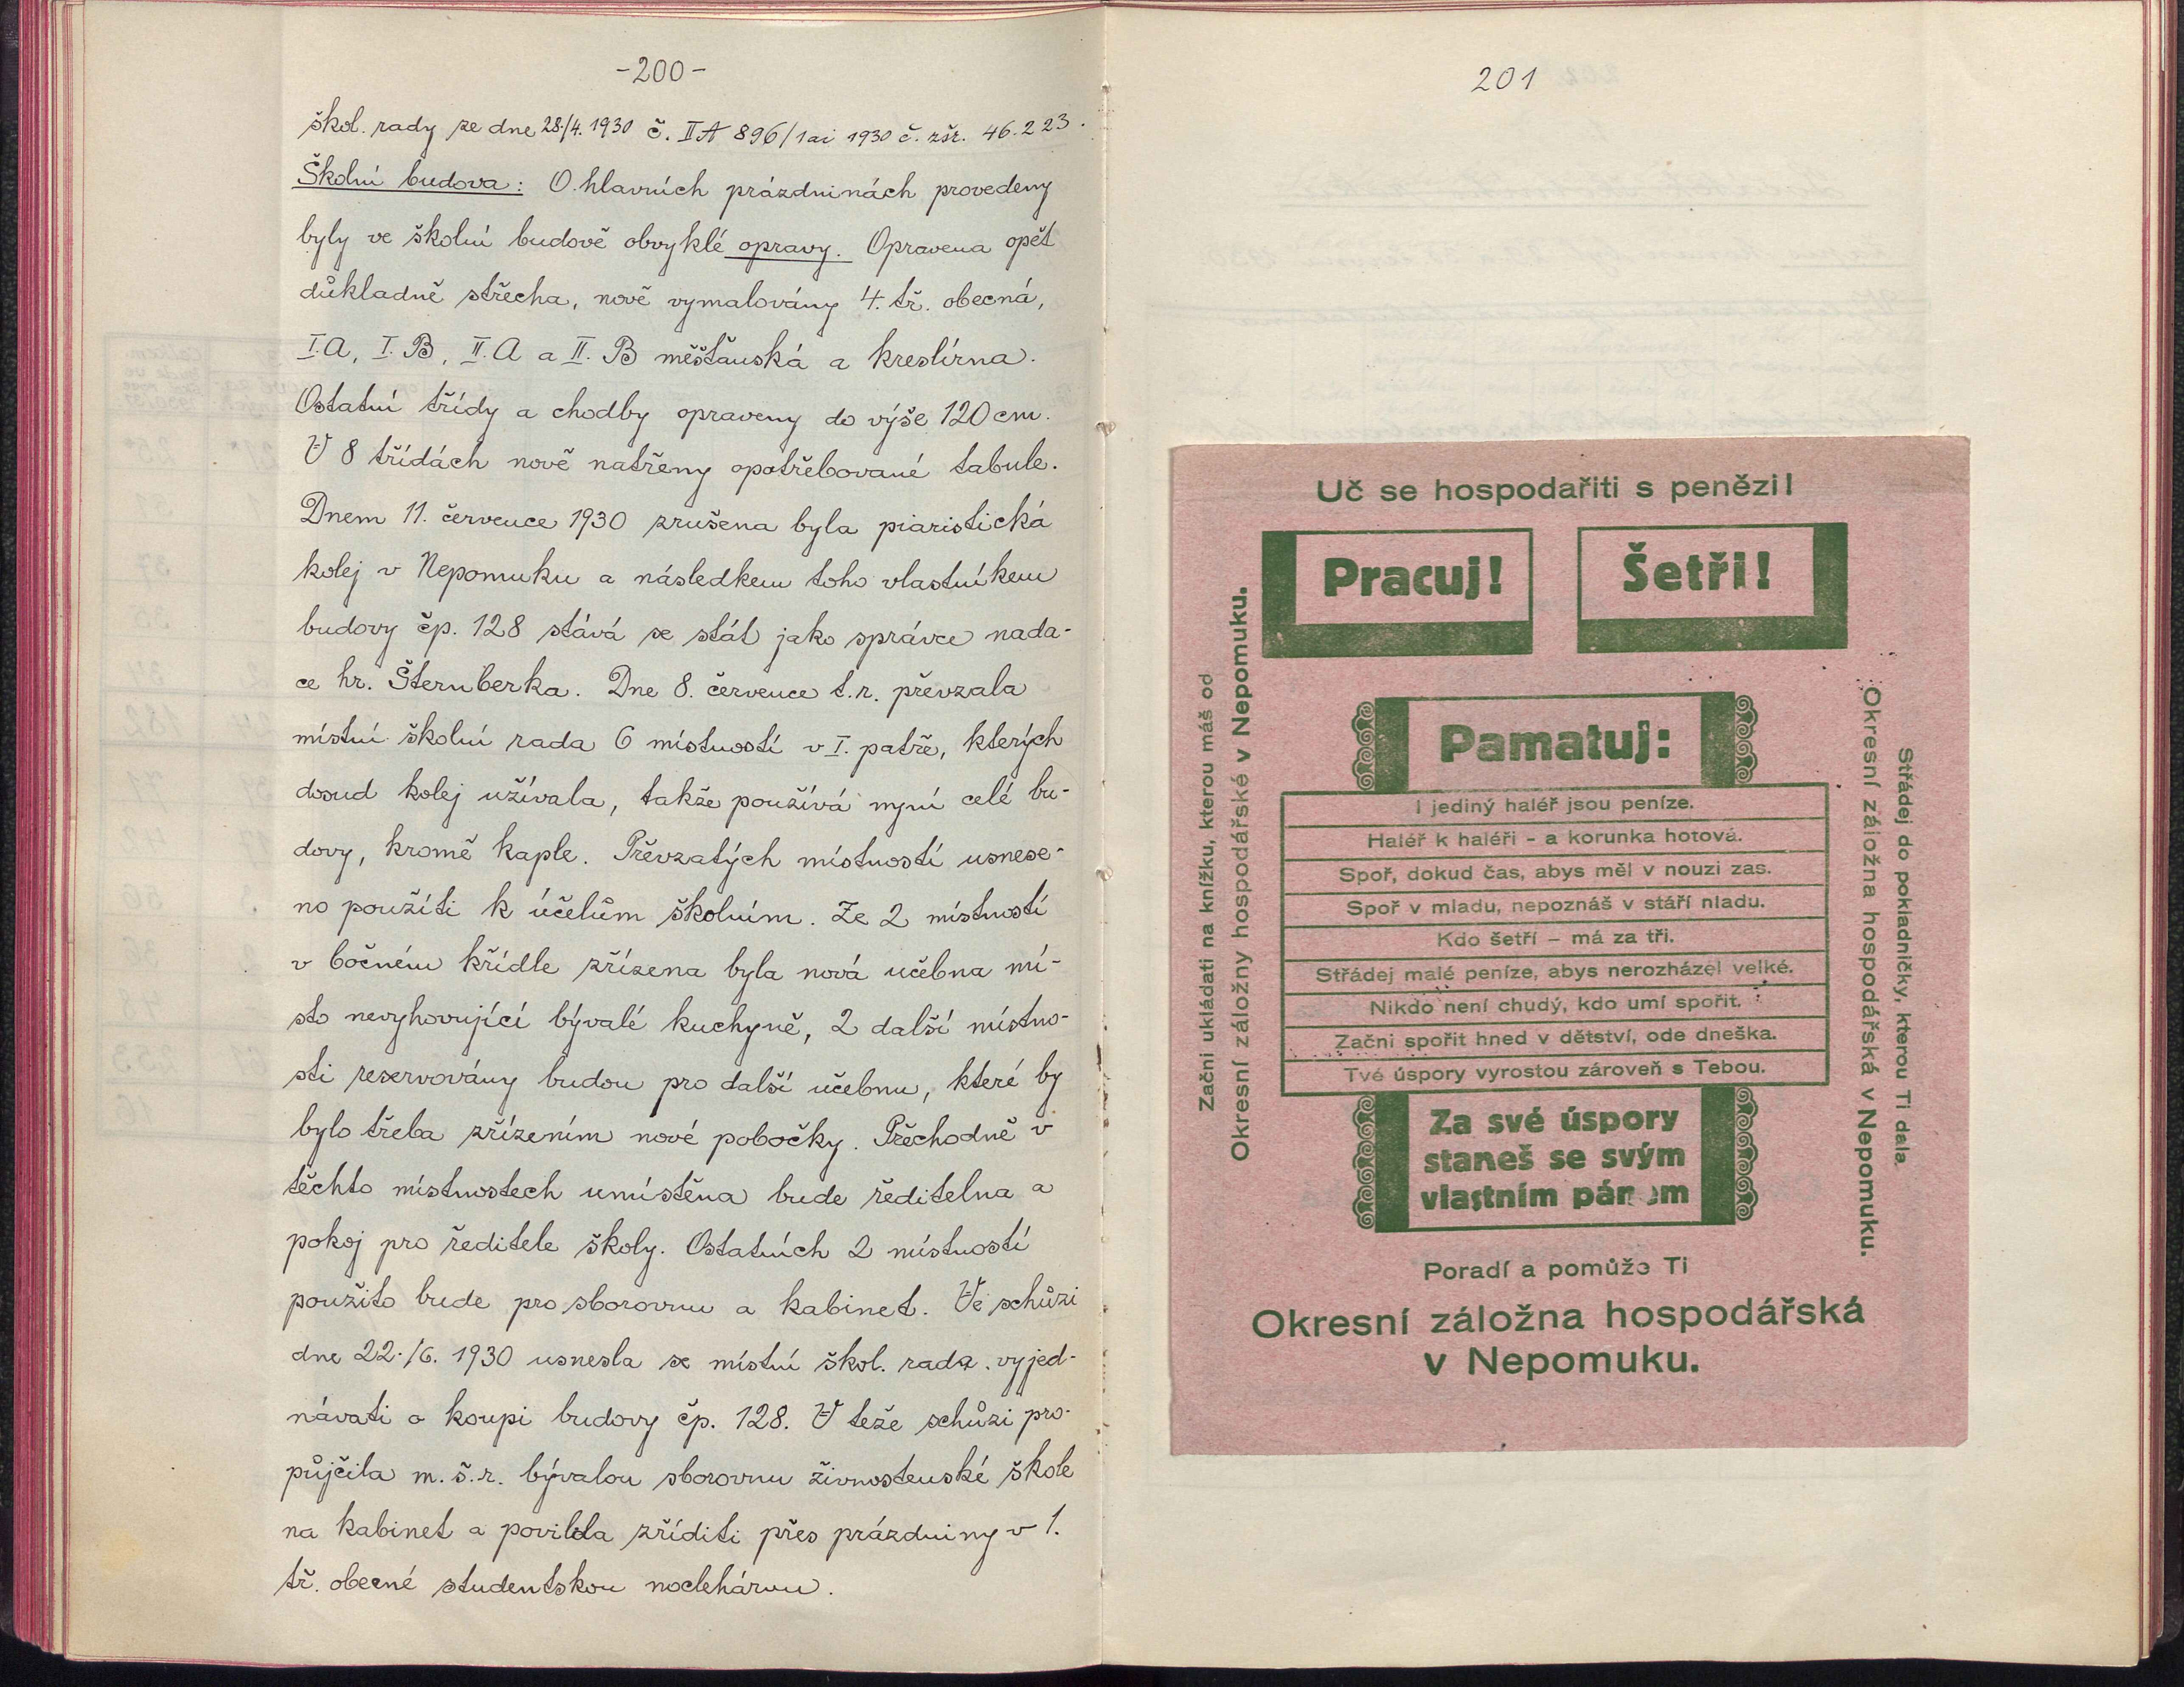 -200-
škol. rady ze dne 28./4. 1930 č. II A 896/1ai 1930 č. zšr. 46.223.
Školní budova: O hlavních prázdninách provedeny
byly ve školní budově obvyklé opravy. Opravena opět
důkladně střecha, nově vymalovány 4. tř. obecná,
I.A, I.B, II.A a II.B měšťanská a kreslírna.
Ostatní třídy a chodby opraveny do výše 120 cm.
V 8 třídách nově natřeny opotřebované tabule.
Dnem 11. července 1930 zrušena byla piaristická
kolej v Nepomuku a následkem toho vlastníkem
budovy čp. 128 stává se stát jako správce nada-
ce hr. Šternberka. Dne 8. července t.r. převzala
místní školní rada 6 místností v I. patře, kterých
dosud kolej užívala, takže používá nyní celé bu-
dovy, kromě kaple. Převzatých místností usnese-
no použíti k účelům školním. Ze 2 místností
v bočném křídle zřízena byla nová učebna mí-
sto nevyhovující bývalé kuchyně, 2 další místno-
sti reservovány budou pro další učebnu, které by
bylo třeba zřízením nové pobočky. Přechodně v
těchto místnostech umístěna bude ředitelna a
pokoj pro ředitele školy. Ostatních 2 místností
použito bude pro sborovnu a kabinet. Ve schůzi
dne 22./6. 1930 usnesla se místní škol. rada vyjed-
návati o koupi budovy čp. 128. V teže schůzi pro-
půjčila m.š.r. bývalou sborovnu živnostenské škole
na kabinet a povilila zříditi přes prázdniny v 1.
tř. obecné studentskou noclehárnu.
201
Uč se hospodařiti s penězi!
Pracuj!
Šetři!
Začni ukládati na knížku, kterou máš od
Okresní záložny hospodářské v Nepomuku.
Pamatuj:
I jediný haléř jsou peníze.
Haléř k haléři - a korunka hotová.
Spoř, dokud čas, abys měl v nouzi zas.
Spoř v mladu, nepoznáš v stáří hladu.
Kdo šetří – má za tři.
Střádej malé peníze, abys nerozházel velké.
Nikdo není chudý, kdo umí spořit.
Začni spořit hned v dětství, ode dneška.
Tvé úspory vyrostou zároveň s Tebou.
Za své úspory
staneš se svým
vlastním pánem
Střádej do pokladničky, kterou Ti dala
Okresní záložna hospodářská v Nepomuku.
Poradí a pomůže Ti
Okresní záložna hospodářská
v Nepomuku.